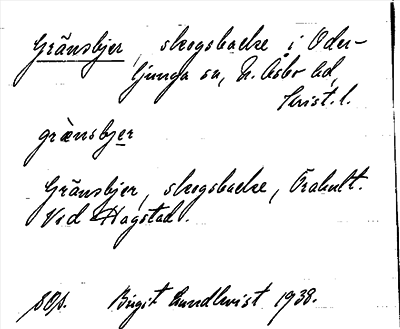 Gränsbjer, skogsbacke i Oder-
ljunga sn, N. Åsbo hd,
Krist. l.
gränsbjer
Gränsbjer, skogsbacke, Örahult.
Vid Hagstad.
Birgit Lundkvist 1938.